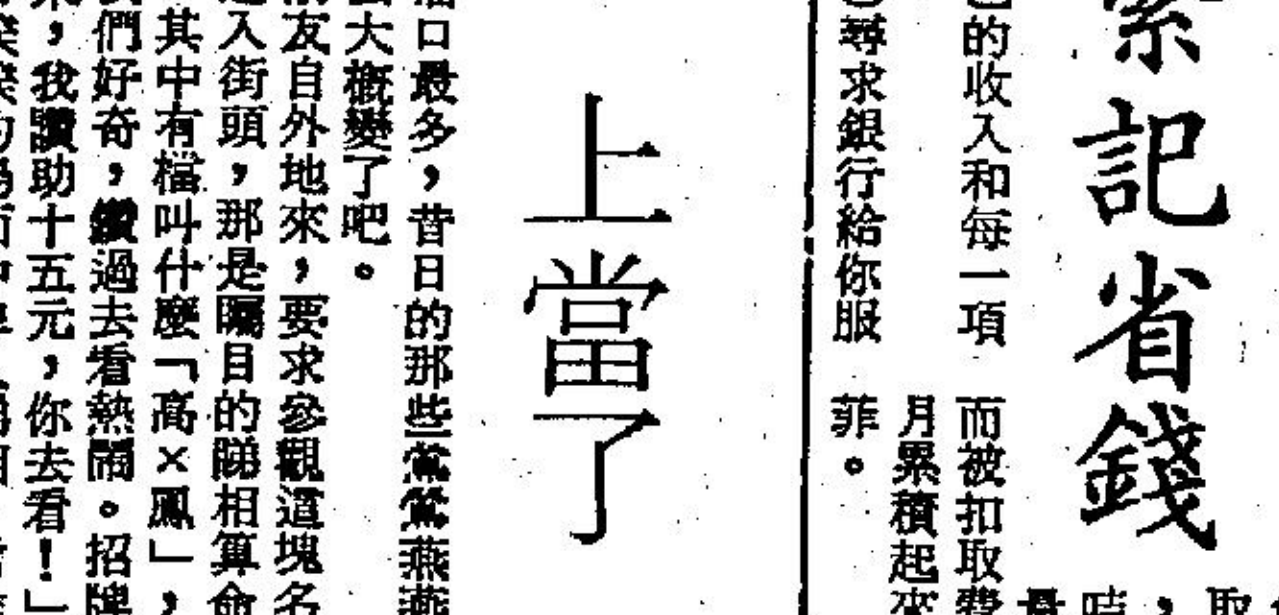 記省錢
的收入和每一項
而被扣取費
月累積起來
尋求銀行給你服
菲。
時，取
最
上當了
口最多，昔日的那些鶯鶯燕燕
大概變了吧。
友自外地來，要求參觀這塊名
入街頭，那是矚目的睇相算命
其中有檔叫什麼「高×鳳」，
們好奇，鑽過去看熱鬧。招牌
，我讚助十五元，你去看！」